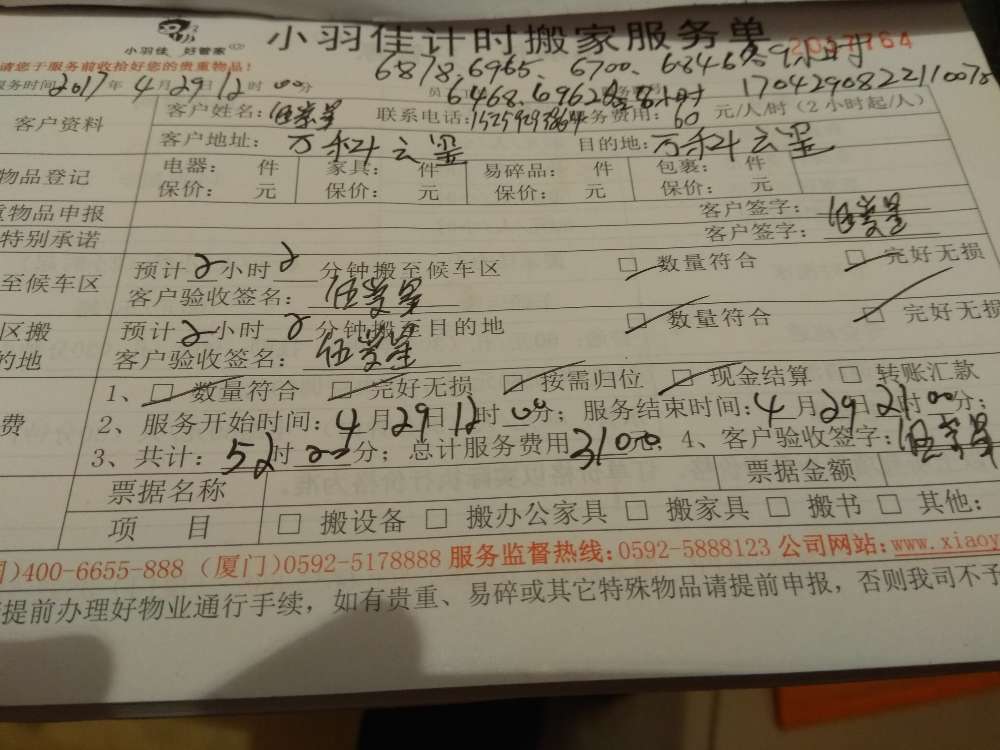 小羽佳 好管家
小羽佳计时搬家服务单
2057764
请您于服务前收拾好您的贵重物品!
6878.6965、6700、6846各9小时
服务时间2017年4月29日12时00分
6468.6962各8小时
1704290822110078
客户资料
客户姓名: 联系电话: 服务费用:60元/人/时(2小时起/人)
客户地址:万科云玺 目的地:万科云玺
物品登记
电器: 件 家具: 件 易碎品: 件 包裹: 件
保价: 元 保价: 元 保价: 元 保价: 元
重物品申报 客户签字:
特别承诺 客户签字:
至候车区
预计2小时2分钟搬至候车区 □ 数量符合 □ 完好无损
客户验收签名:
区搬
的地
预计2小时2分钟搬至目的地 □ 数量符合 □ 完好无损
客户验收签名:
费
1、□ 数量符合 □ 完好无损 □ 按需归位 □ 现金结算 □ 转账汇款
2、服务开始时间:4月29日12时00分;服务结束时间:4月29日21时00分;
3、共计:52时 分;总计服务费用3100元 4、客户验收签字:
票据名称 票据金额
项 目 □ 搬设备 □ 搬办公家具 □ 搬家具 □ 搬书 □ 其他:
)400-6655-888 (厦门)0592-5178888 服务监督热线:0592-5888123 公司网站:www.xiaoy
提前办理好物业通行手续,如有贵重、易碎或其它特殊物品请提前申报,否则我司不予